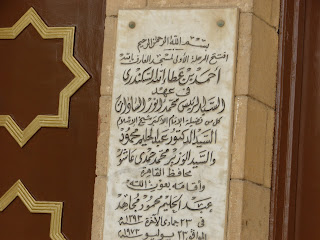 بسم الله الرحمن الرحيم
افتتح المرحلة الأولى لمسجد العارف بالله
أحمد بن عطاء الله السكندري
في عهد
السيد الرئيس محمد أنور السادات
كل من فضيلة الإمام الأكبر شيخ الإسلام
السيد الدكتور عبد الحليم محمود
والسيد الوزير محمد حمدي عاشور
محافظ القاهرة
وأقامه بعون الله
عبد الحليم محمود مجاهد
في ٢٣ جمادى الآخرة ١٣٩٣
الموافق ٢٣ يوليو ١٩٧٣